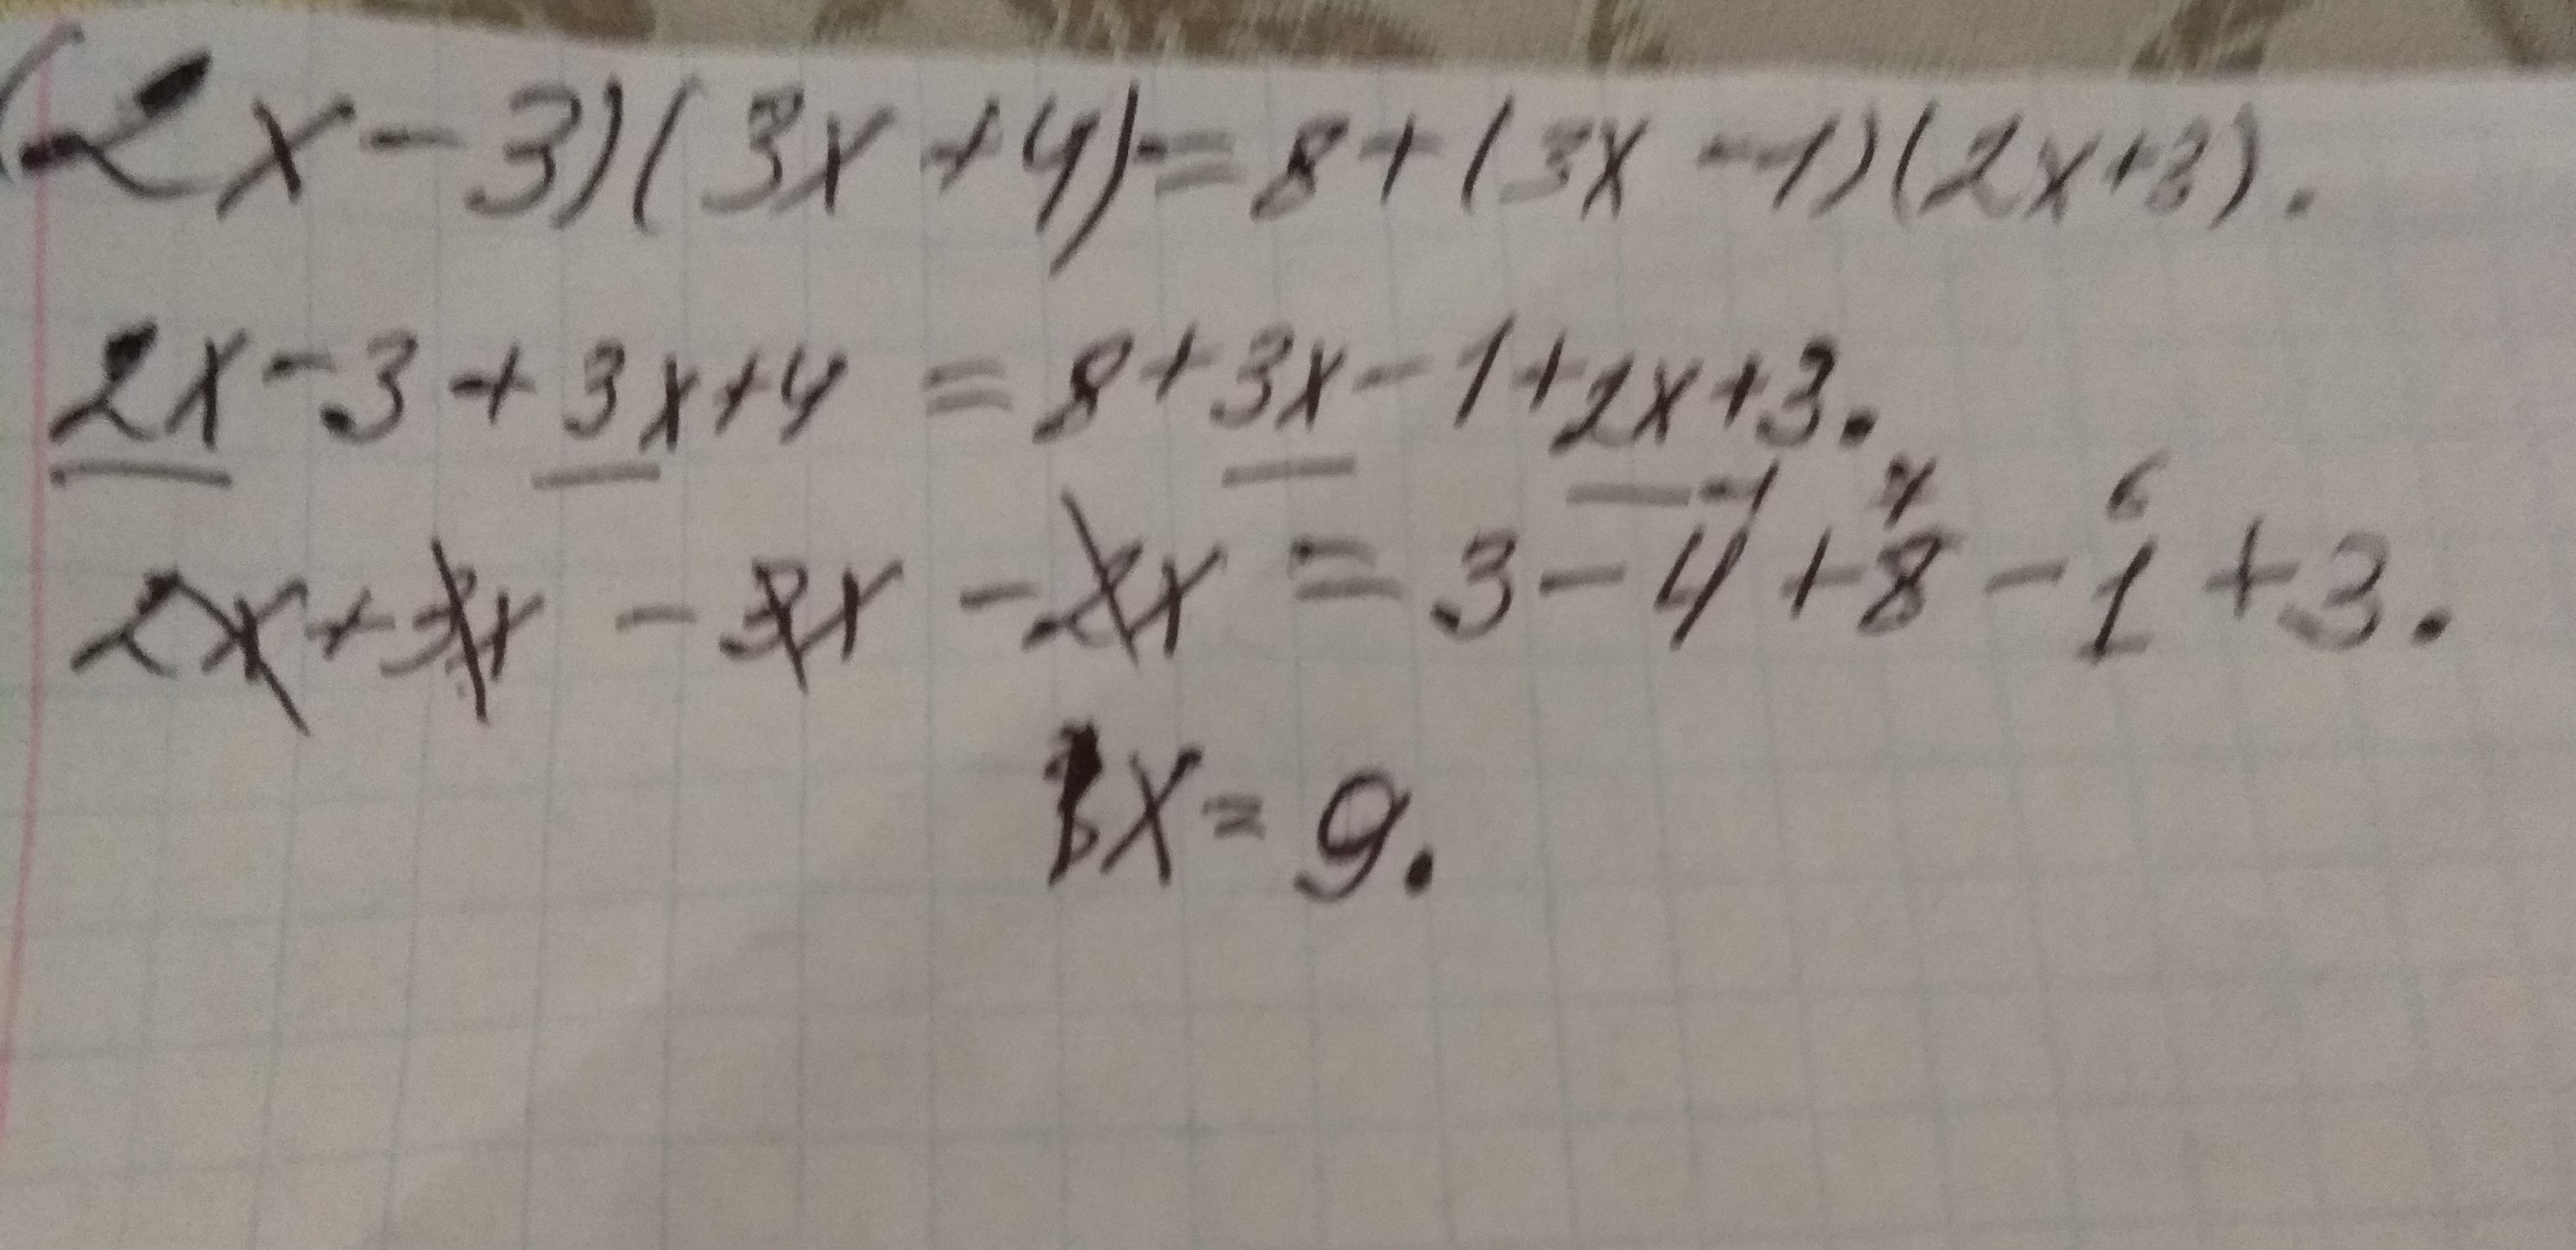 (2x-3)(3x+4)=8+(3x-1)(2x+3).
2x-3+3x+4=8+3x-1+2x+3.
-1 7 6
2x+3x-3x-2x=3-4+8-1+3.
1x=9.